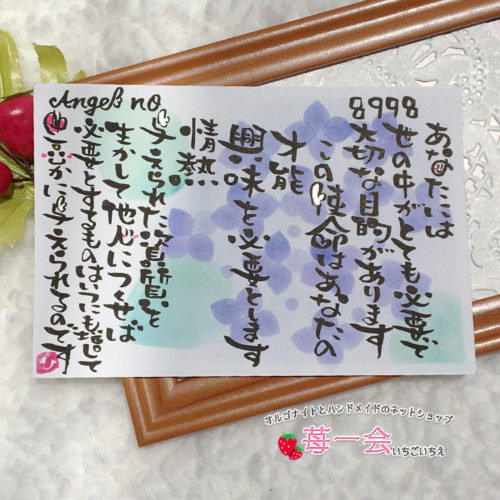 Angel no.
8998
あなたには
世の中がとても必要で
大切な目的があります
この使命はあなたの
才能
情熱
興味を必要とします
与えられた資質を
生かして他人につくせば
必要とするものはいつにも増して
豊かに与えられてるのです
オルゴナイトとハンドメイドのネットショップ
苺一会 いちごいちえ